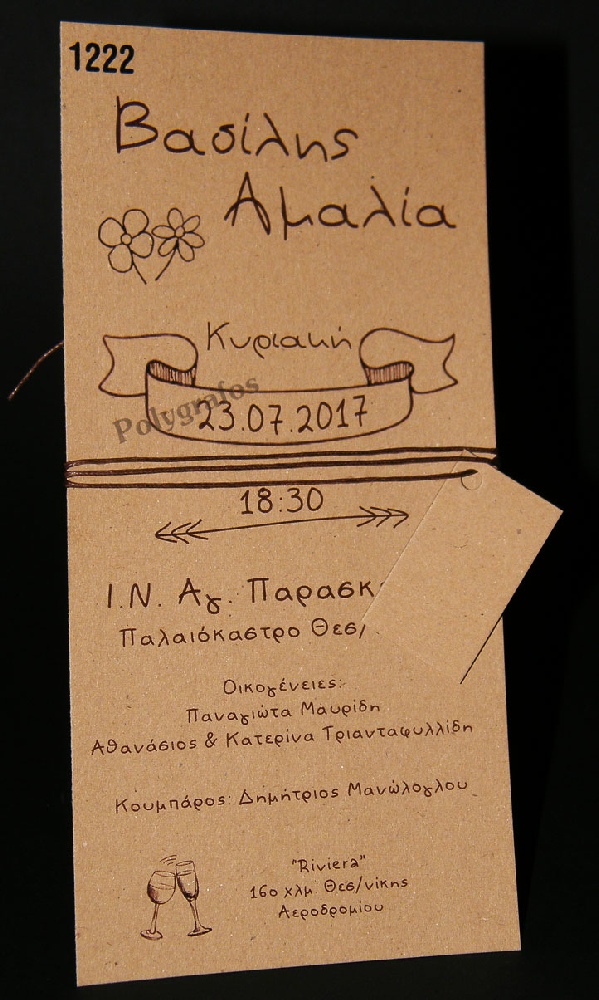 1222
Βασίλης
Αμαλία
Κυριακή
Polygrafos
23.07.2017
18:30
Ι.Ν. Αγ. Παρασκ
Παλαιόκαστρο Θεσ/
Οικογένειες:
Παναγιώτα Μαυρίδη
Αθανάσιος & Κατερίνα Τριανταφυλλίδη
Κουμπάρος: Δημήτριος Μανώλογλου
"Riviera"
16ο χλμ Θεσ/νίκης
Αεροδρομίου